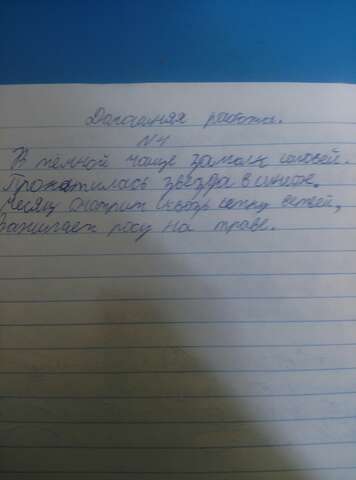 Домашняя работа.
№1
В тёмной чаще замолк соловей.
Прокатилась звезда в синеве.
Месяц смотрит сквозь сетку ветвей,
Зажигает росу на траве.